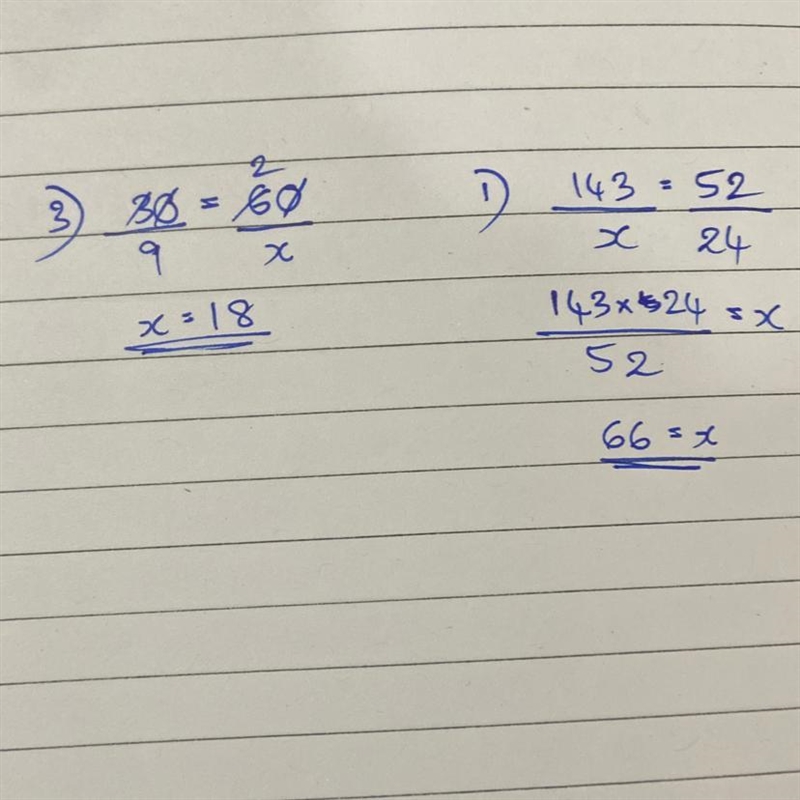 3) 30/9 = 2 60/x
x = 18
1) 143/x = 52/24
143 x 24/52 = x
66 = x